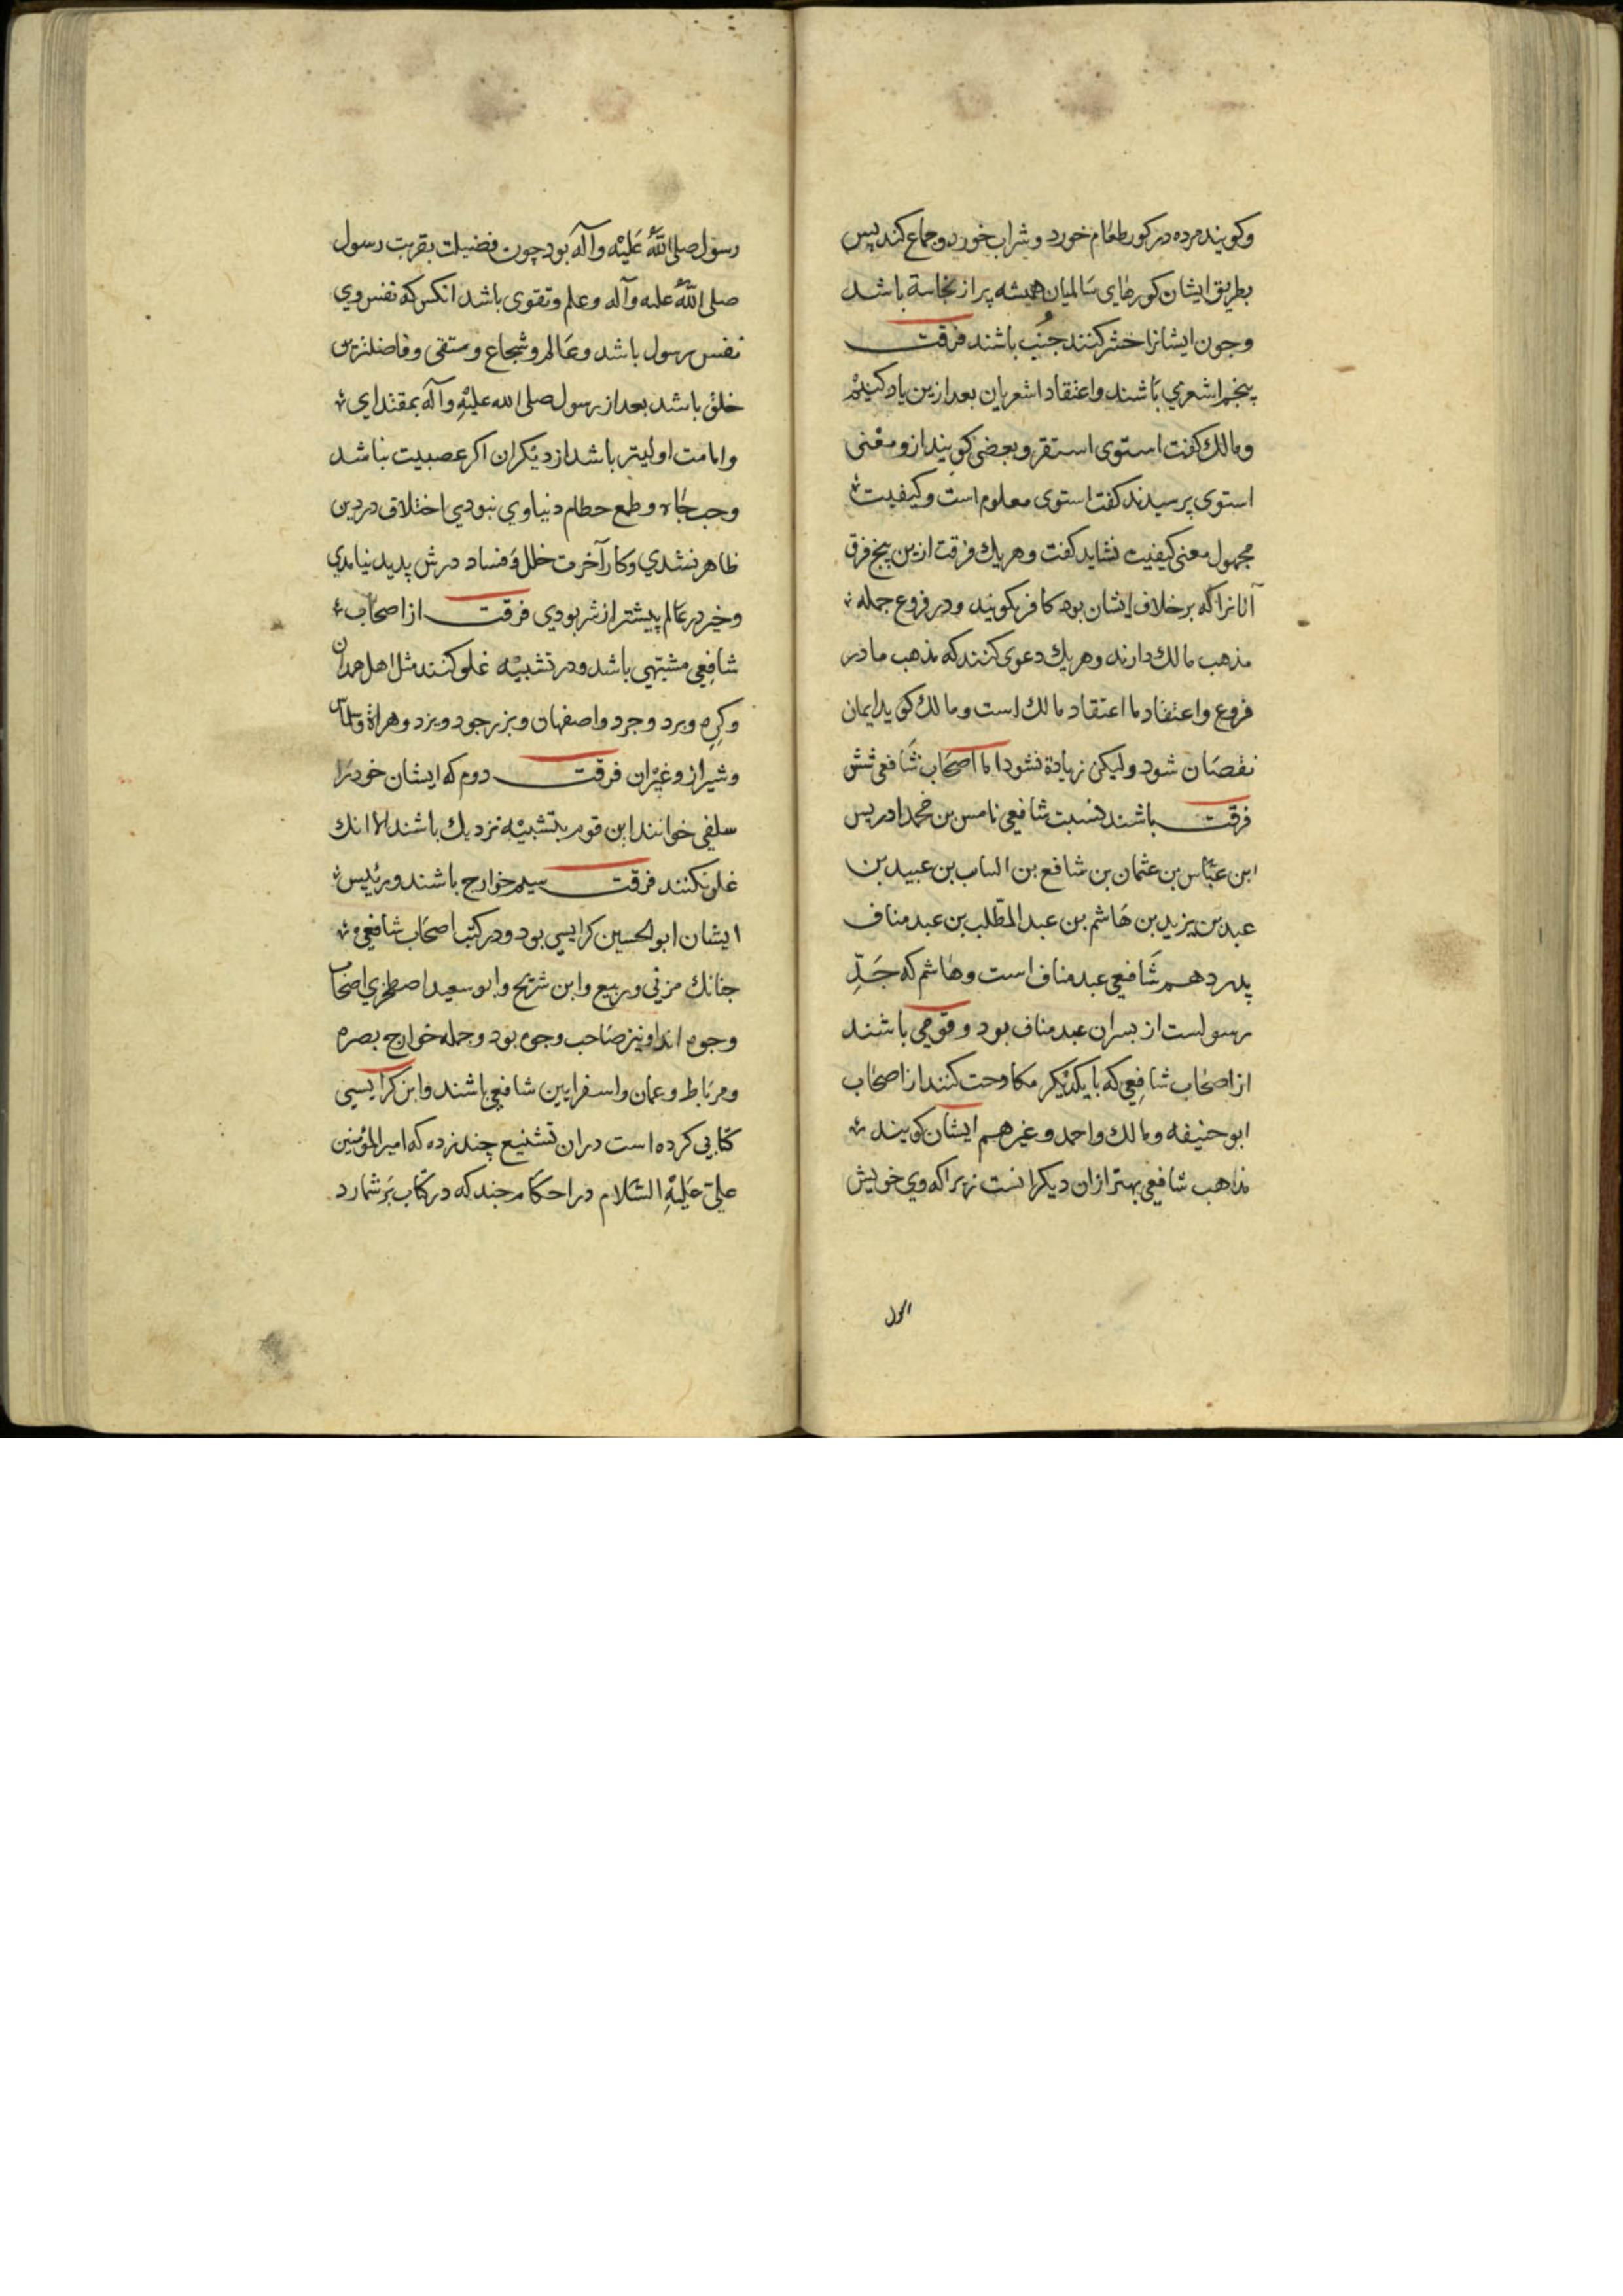 وکویند مرده در کور طعام خورد و شراب خورد و جماع کند پس
بطریق ایشان کورهای سالمیان همیشه پر از نجاسة باشد
وجون ایشانرا حشر کنند جنب باشند فرقت
پنجم اشعري باشند واعتقاد اشعریان بعد ازین یاد کنیم
ومالك کفت استوی استقر وبعضی کویند از و معنی
استوی پرسیدند کفت استوی معلوم است وکیفیت
مجهول معنی کیفیت نشاید کفت وهر یك فرقت ازین پنج فرق
آنانرا که بر خلاف ایشان بود کافر کویند ودر فروع جمله
مذهب مالك دارند وهر یك دعوی کنند که مذهب ما در
فروع واعتقاد ما اعتقاد مالك است ومالك کوید ایمان
نقصان شود ولیکن زیادة نشود اما اصحاب شافعی شش
فرقت باشند نسبت شافعی نامس بن محمد ادریس
ابن عباس بن عثمان بن شافع بن الساب بن عبید بن
عبد بن یزید بن هاشم بن عبد المطلب بن عبد مناف
پدر دهم شافعی عبد مناف است وهاشم که جدّ
رسولست از بسران عبد مناف بود وقومی باشند
از اصحاب شافعی که با یکدیکر مکاوحت کنند از اصحاب
ابو حنیفه ومالك واحمد وغیرهم ایشان کویند
مذاهب شافعی بهتر از ان دیکرانست زیرا که وي خویش
رسول صلی الله علیه وآله بود چون فضیلت بقربت رسول
صلی الله علیه وآله وعلم وتقوی باشد انکس که نفس وي
نفس رسول باشد وعالم وشجاع ومتقی وفاضلترین
خلق باشد بعد از رسول صلی الله علیه وآله بمقتدایي
وامامت اولیتر باشد از دیکران اکر عصبیت نباشد
وحب جاه وطمع حطام دنیاوي نبودي اختلاف در دین
ظاهر نشدي وکار آخرت خلل وفساد درش پدید نیامدي
وخیر در عالم پیشتر از شر بودي فرقت از اصحاب
شافعی مشبهي باشد ودر تشبیه غلو کنند مثل اهل همدان
وکره وبرد وجرد واصفهان ویزد وهراة
وشیراز وغیران فرقت دوم که ایشان خود را
سلفی خوانند این قوم بتشبیه نزدیك باشند الا انك
غلو نکنند فرقت سیم خوارج باشند ورئیس
ایشان ابو الحسین کرابیسي بود ودر کتب اصحاب شافعي
جنانك مزني وربیع وابن شریح وابو سعید اصطخري اصحاب
وجوه اند او نیز صاحب وجوه بود وجمله خوارج بصره
ومرباط وعمان واسفرایین شافعي باشند وابن کرابیسي
کتابي کرده است در ان تشنیع چند زده که امیر المؤمنین
علي علیه السلام در احکام جند که در کتاب برشمارد